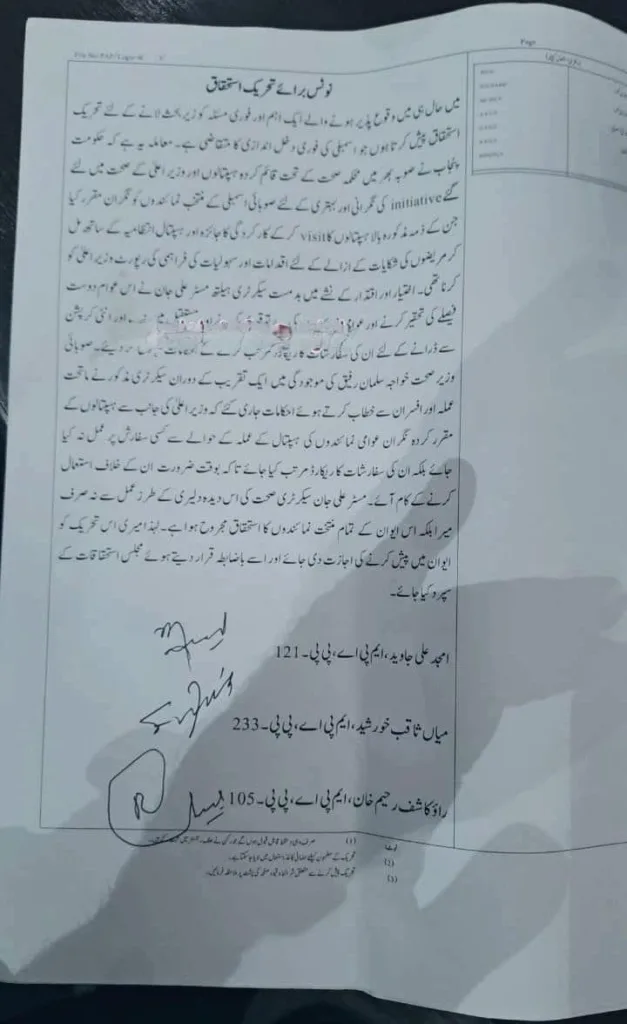 Page
نوٹس برائے تحریک استحقاق
میں حال ہی میں وقوع پذیر ہونے والے ایک اہم اور فوری مسئلہ کو زیر بحث لانے کے لئے تحریک
استحقاق پیش کرتا ہوں جو اسمبلی کی فوری دخل اندازی کا متقاضی ہے۔ معاملہ یہ ہے کہ حکومت
پنجاب نے صوبہ بھر میں محکمہ صحت کے تحت قائم کردہ ہسپتالوں اور وزیر اعلیٰ کے صحت میں لئے
گئے initiative کی نگرانی اور بہتری کے لئے صوبائی اسمبلی کے منتخب نمائندوں کو نگران مقرر کیا
جن کے ذمہ مذکورہ بالا ہسپتالوں کا visit کر کے کارکردگی کا جائزہ اور ہسپتال انتظامیہ کے ساتھ مل
کر مریضوں کی شکایات کے ازالے کے لئے اقدامات اور سہولیات کی فراہمی کی رپورٹ وزیر اعلیٰ کو
کرنا تھی۔ اختیار اور اقتدار کے نشے میں بدمست سیکرٹری ہیلتھ مسٹر علی جان نے اس عوام دوست
فیصلے کی تحقیر کرنے اور مستقبل میں اور انٹی کرپشن
سے ڈرانے کے لئے ان کی سفارشات کا ریکارڈ مرتب کرنے کے دیئے۔ صوبائی
وزیر صحت خواجہ سلمان رفیق کی موجودگی میں ایک تقریب کے دوران سیکرٹری مذکور نے ماتحت
عملہ اور افسران سے خطاب کرتے ہوئے احکامات جاری کئے کہ وزیر اعلیٰ کی جانب سے ہسپتالوں کے
مقرر کردہ نگران عوامی نمائندوں کی ہسپتال کے عملہ کے حوالے سے کسی سفارش پر عمل نہ کیا
جائے بلکہ ان کی سفارشات کا ریکارڈ مرتب کیا جائے تاکہ بوقت ضرورت ان کے خلاف استعمال
کرنے کے کام آئے۔ مسٹر علی جان سیکرٹری صحت کی اس دیدہ دلیری کے طرز عمل سے نہ صرف
میرا بلکہ اس ایوان کے تمام منتخب نمائندوں کا استحقاق مجروح ہوا ہے۔ لہذا میری اس تحریک کو
ایوان میں پیش کرنے کی اجازت دی جائے اور اسے باضابطہ قرار دیتے ہوئے مجلس استحقاقات کے
سپرد کیا جائے۔
امجد علی جاوید، ایم پی اے، پی پی۔121
میاں ثاقب خورشید، ایم پی اے، پی پی۔233
راؤ کاشف رحیم خان، ایم پی اے، پی پی۔105